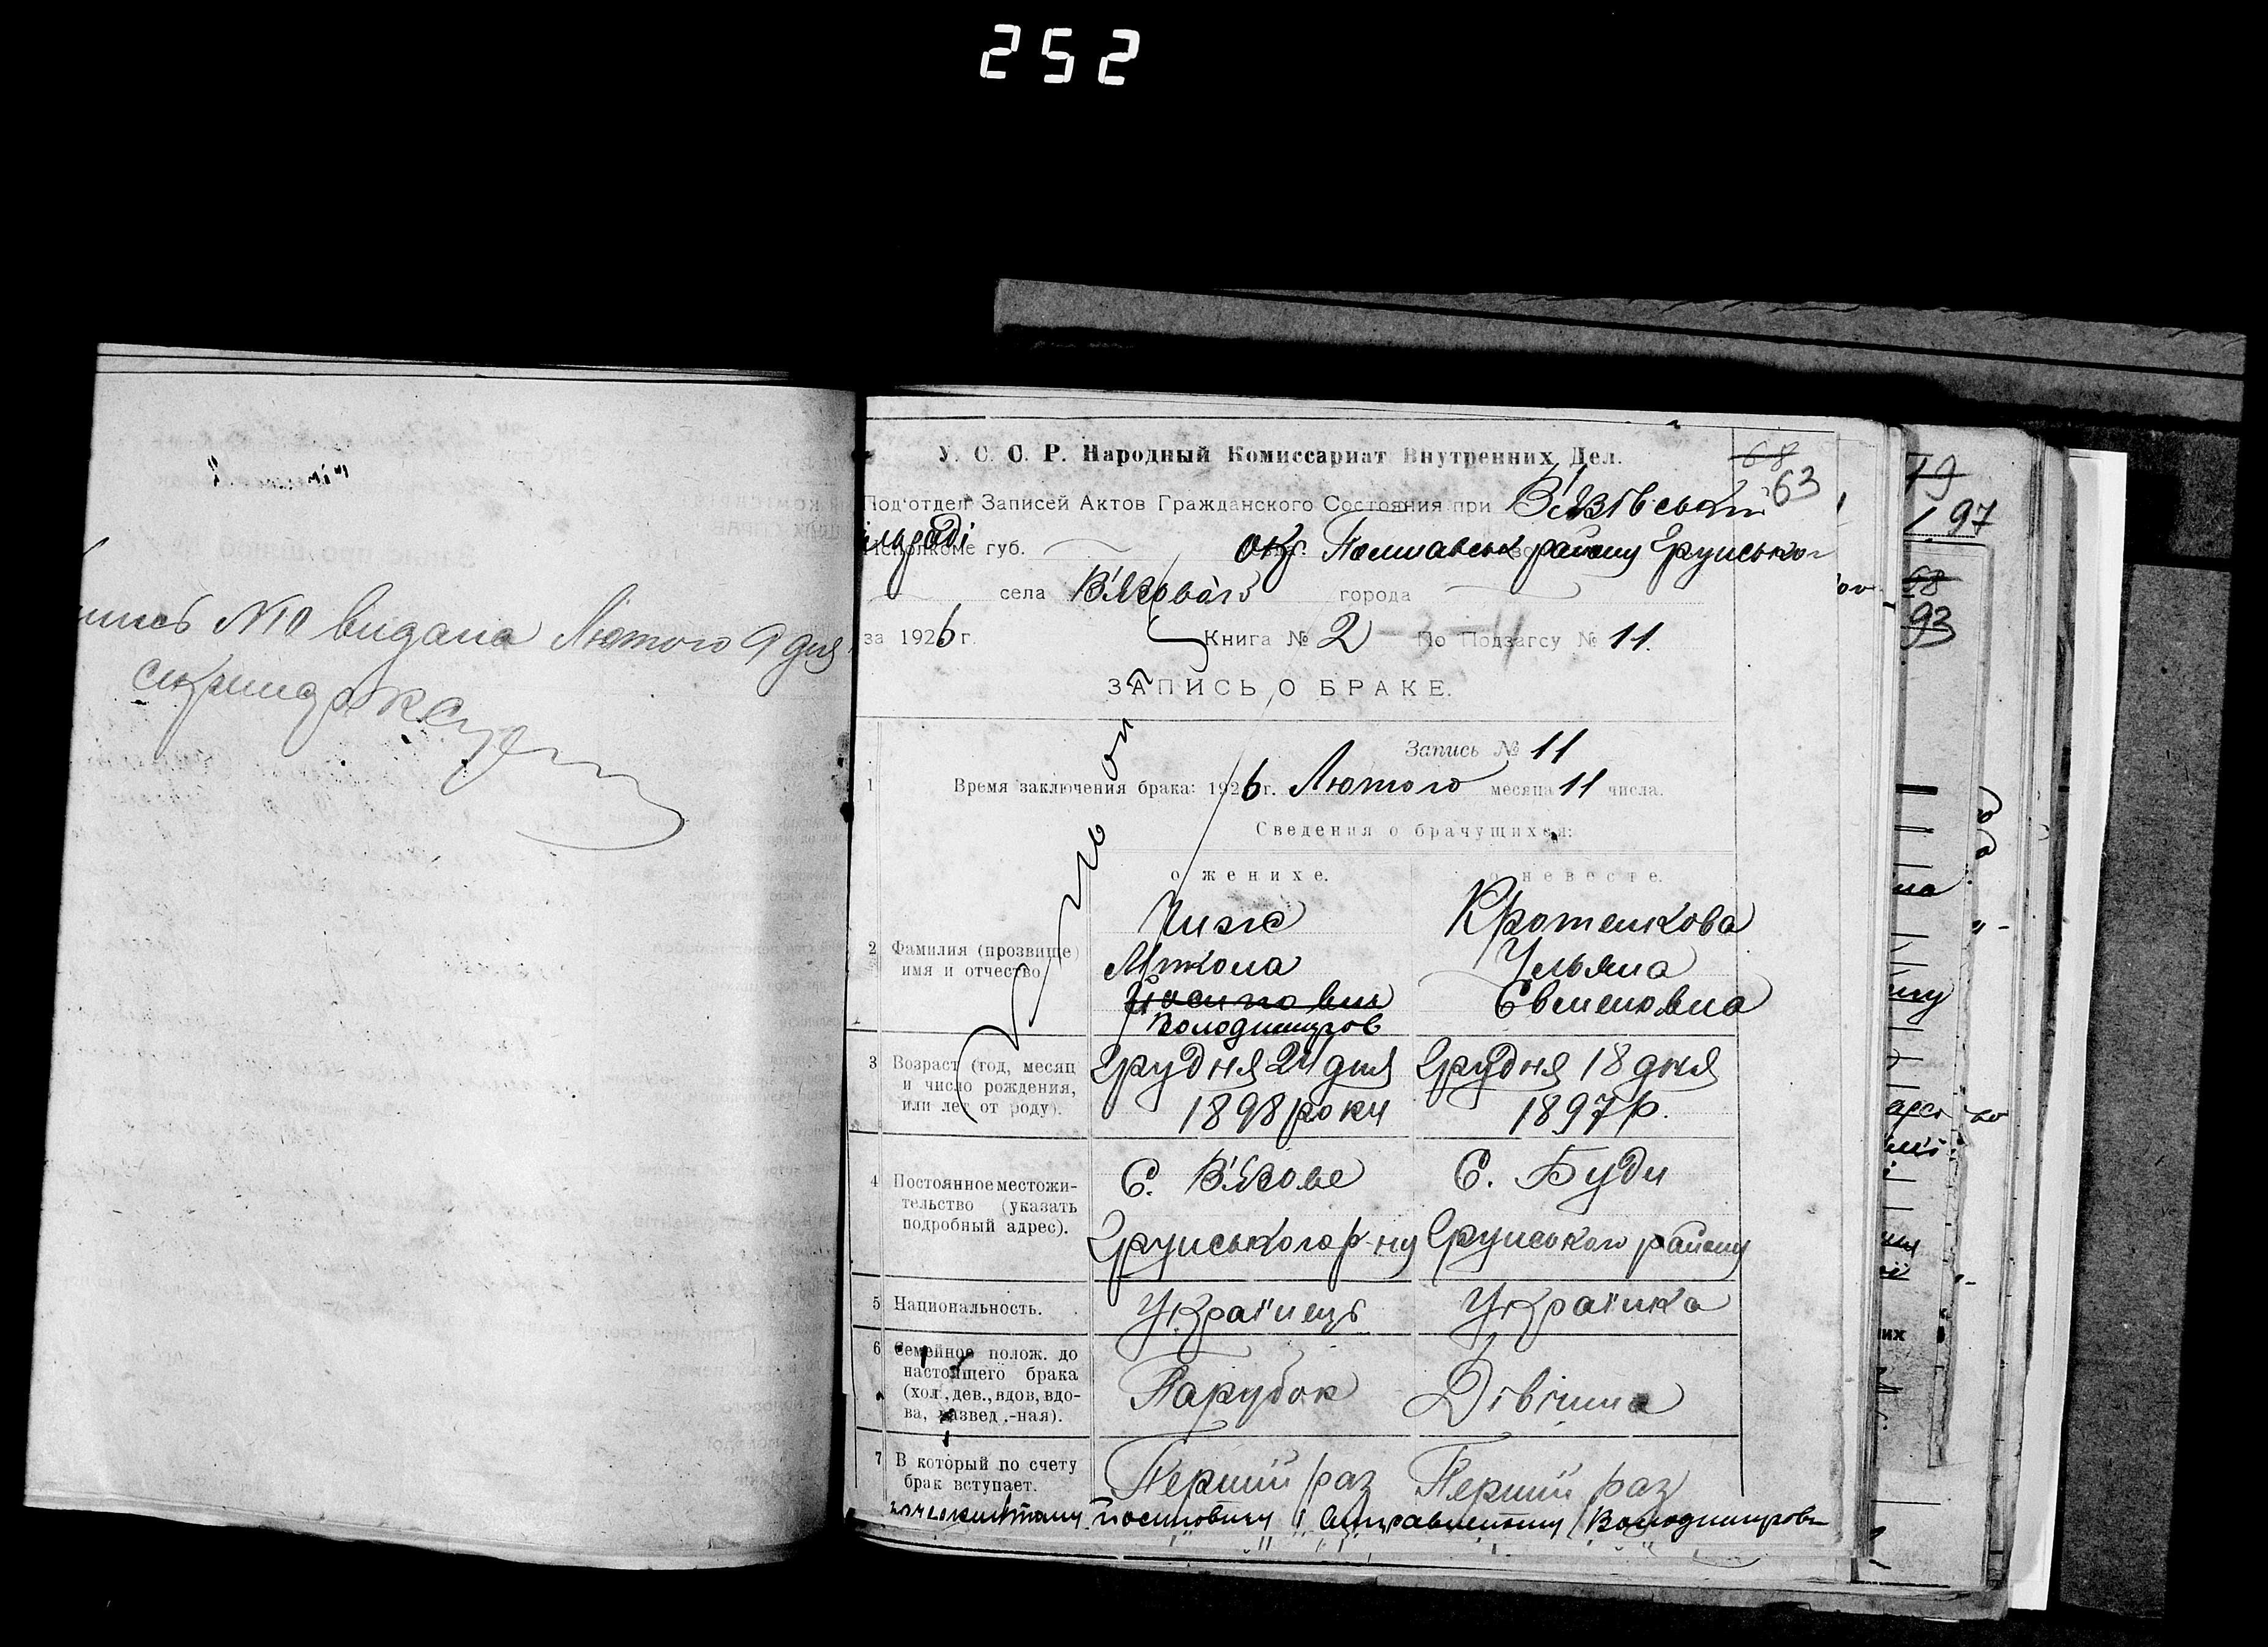 252
N10 видана Лютого 9 дня
У. С. С. Р. Народный Комиссариат Внутренних Дел.
68
63
Под'отдел Записей Актов Гражданского Состояния при В'язівській
сільраді
Исполкоме губ. окр. Полтавськ району Грунсько
села В'язового города
за 1926 г. Книга № 2 По Подзагсу № 11.
ЗАПИСЬ О БРАКЕ.
Запись № 11
1 Время заключения брака: 1926 г. Лютого месяца 11 числа.
Сведения о брачущихся:
о женихе. о невесте.
2 Фамилия (прозвище) имя и отчество.
Чиж
Микола
Йосипович
Володимиров
Кротенкова
Ульяна
Євменовна
3 Возраст (год, месяц
и число рождения,
или лет от роду).
Грудня 24 дня
1898 роки
Грудня 18 дня
1897 р.
4 Постоянное местожи-
тельство (указать
подробный адрес).
С. В'язове
Грунського р-ну
С. Буди
Грунського району
5 Национальность.
Українець
Українка
6 Семейное полож. до
настоящего брака
(хол., дев., вдов, вдо-
ва, развед.-ная).
Парубок
Дівчина
7 В который по счету
брак вступает.
Перший раз
Перший раз
Йосиповичу і виправленному Володимиров
79
97
68
93